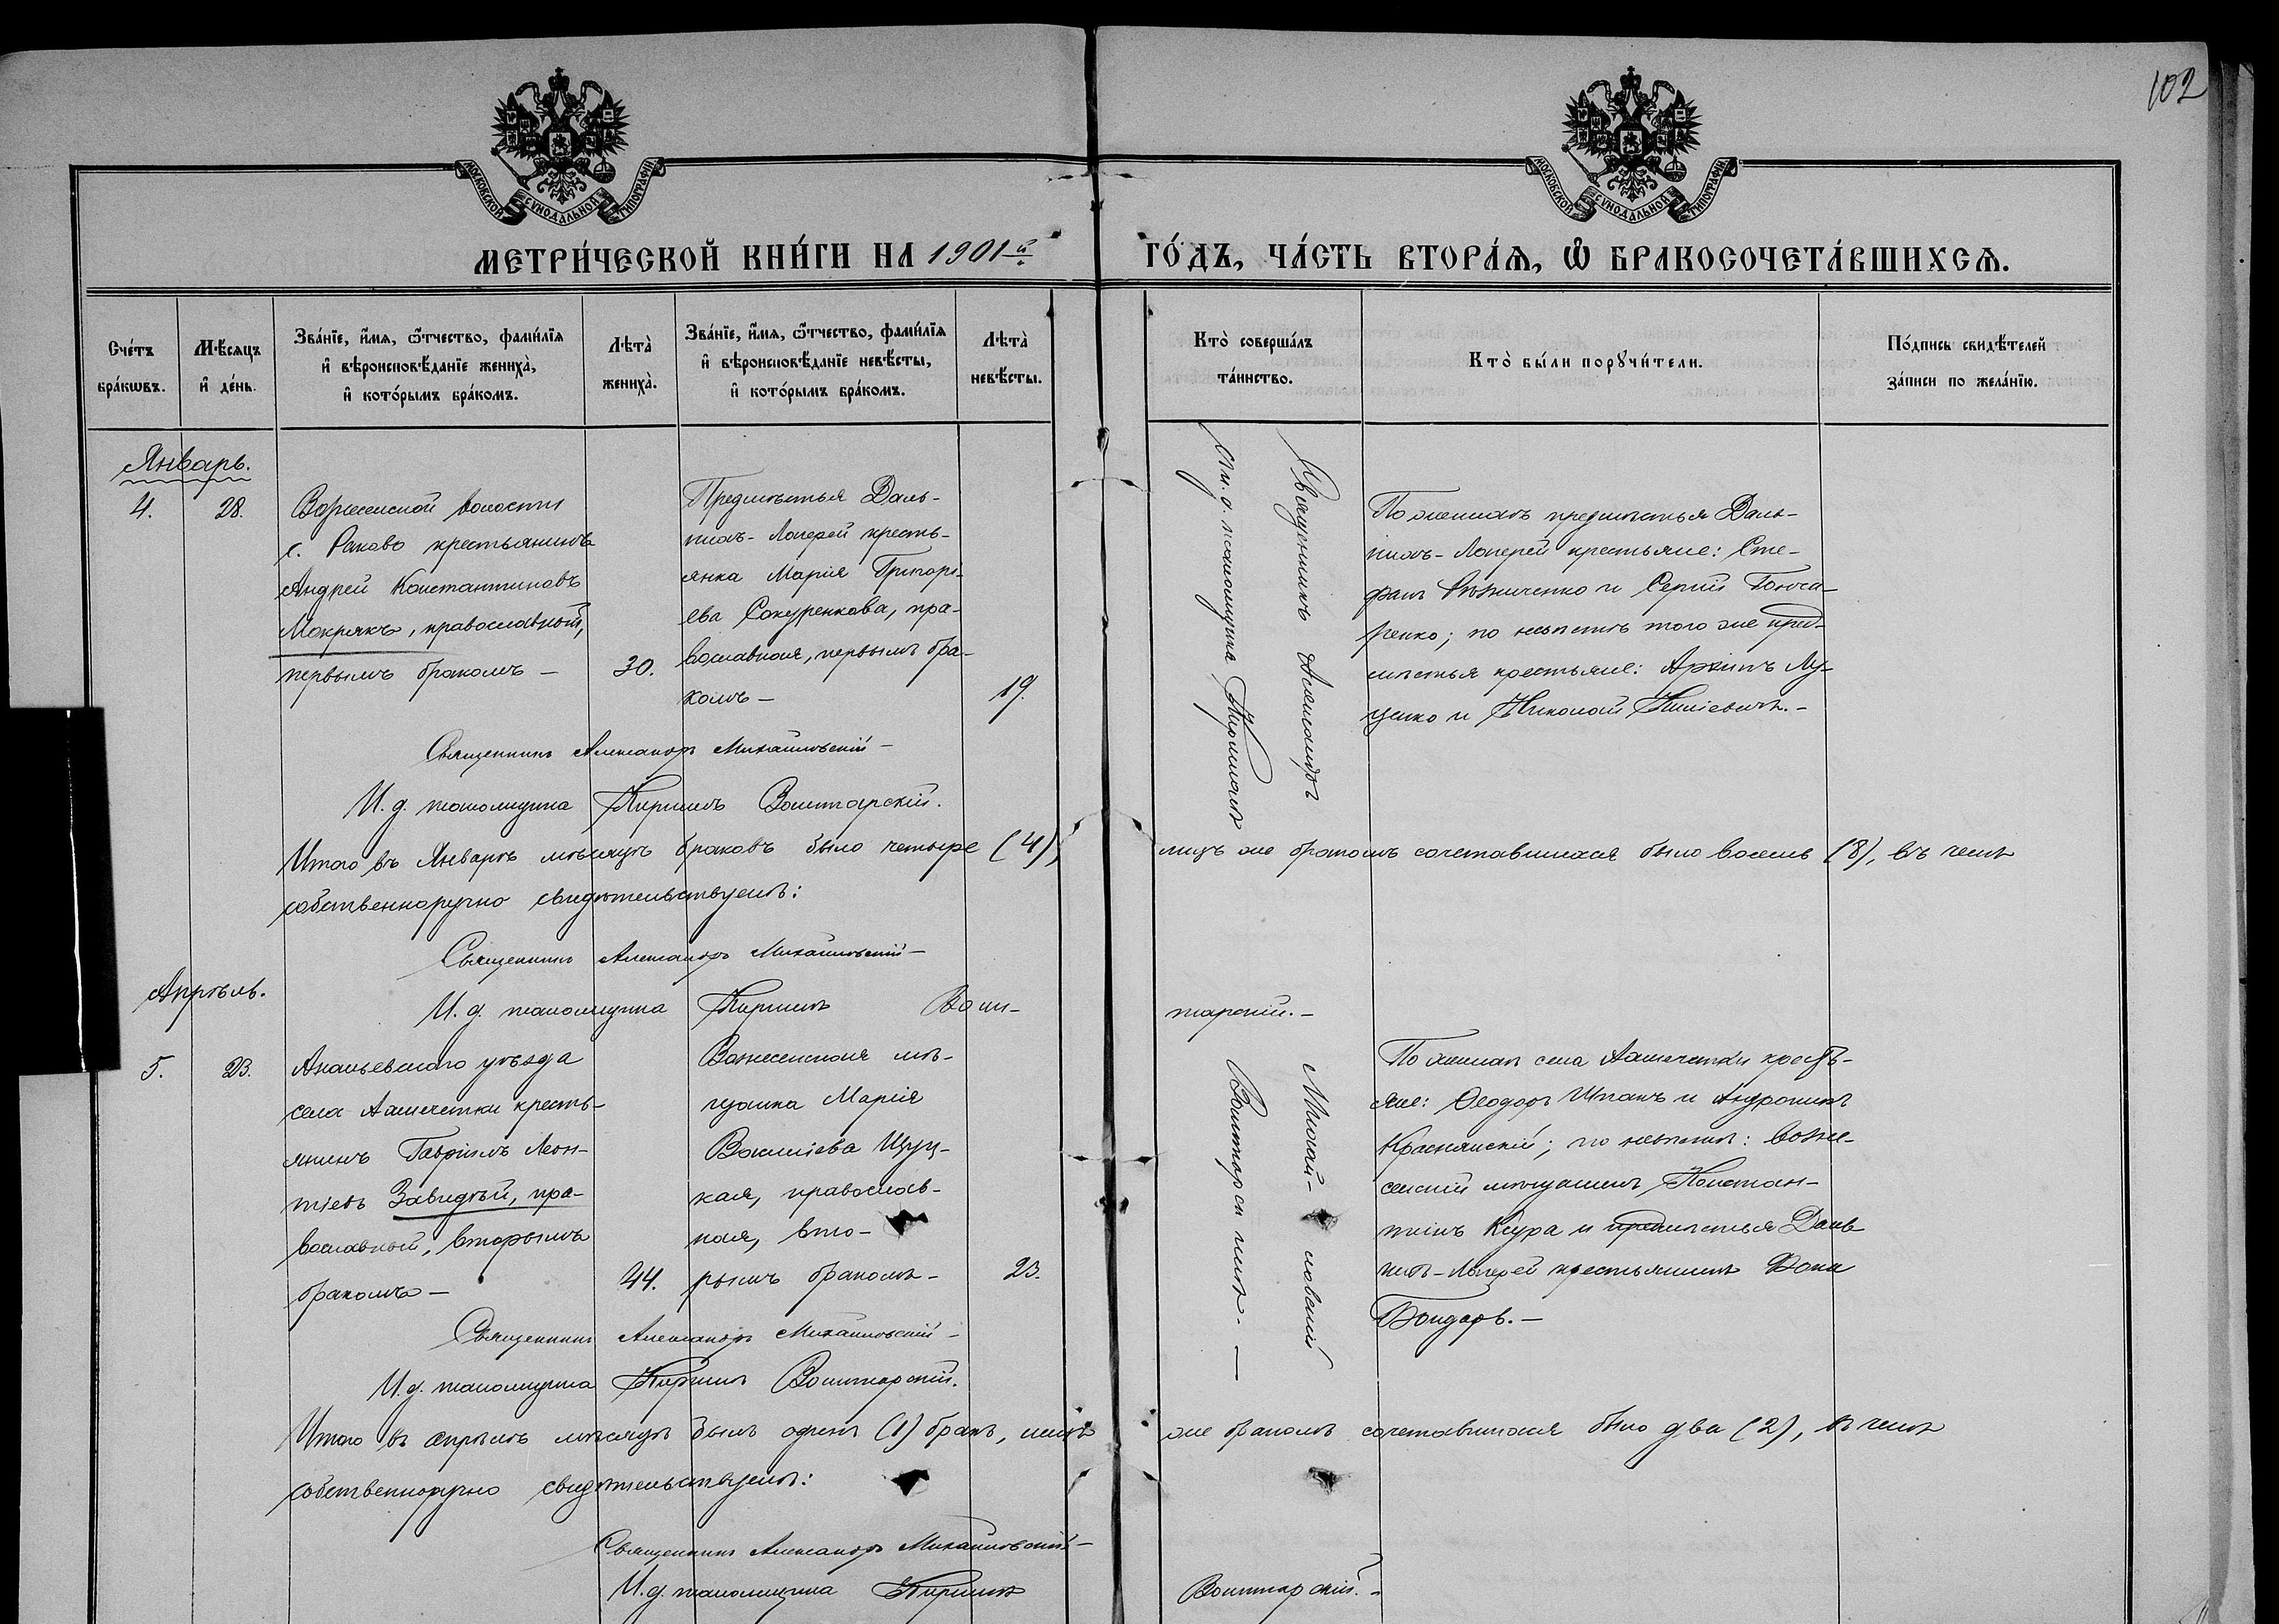 102
МОСКОВСКОЙ СУНОДАЛЬНОЙ ТИПОГРАФІИ
МОСКОВСКОЙ СУНОДАЛЬНОЙ ТИПОГРАФІИ
МЕТРИ́ЧЕСКОЙ КНИ́ГИ НА 1901й ГО́ДЪ, ЧА́СТЬ ВТОРА́Ѧ, Ѽ БРАКОСОЧЕТА́ВШИХСѦ.
Сче́тъ
бра́кѡвъ.
Мѣ́сяцъ
и҆ де́нь.
Зва́нїе, и҆́мя, ѻ҆́тчество, фами́лїя
и҆ вѣроисповѣ́данїе жениха̀,
и҆ кото́рымъ бра́комъ.
Лѣта̀
жениха̀.
Зва́нїе, и҆́мя, ѻ҆́тчество, фами́лїя
и҆ вѣроисповѣ́данїе невѣ́сты,
и҆ кото́рымъ бра́комъ.
Лѣта̀
невѣ́сты.
Кто̀ соверша́лъ
та́инство.
Кто̀ бы́ли порꙋчи́тели.
По́дпись свидѣ́телей
за́писи по жела́нїю.
Январь.
4.
28.
волости
с. Раково крестьянинъ
Андрей Константиновъ
Мокрякъ, православный,
первымъ бракомъ —
30.
Предмѣстья Даль-
нихъ-Лагерей кресть-
янка Марія Григорі-
ева Сокуренкова, пра-
вославная, первымъ бра-
комъ —
19.
Священникъ Александръ
И. д. псаломщика Кириллъ
По женихѣ предмѣстья Даль-
нихъ-Лагерей крестьяне: Сте-
фанъ и Сергій Гонча-
ренко; по невѣстѣ того же пред-
мѣстья крестьяне: Архипъ Лу-
ценко и Николай
Священникъ Александръ Михайловскій —
И. д. псаломщика Кириллъ Войтарскій.
Итого въ Январѣ мѣсяцѣ браковъ было четыре (4), лицъ же бракомъ сочетавшихся было восемь (8), въ чемъ
собственноручно свидѣтельствуемъ:
Священникъ Александръ Михайловскій —
И. д. псаломщика Кириллъ Вой-
тарскій. —
Апрѣль.
5.
23.
Ананьевскаго уѣзда
села Лашчетки кресть-
янинъ Гавріилъ Леон-
тіевъ Завидѣй, пра-
вославный, вторымъ
бракомъ —
44.
Вознесенская мѣ-
щанка Марія
Василіева Щуц-
кая, православ-
ная, вто-
рымъ бракомъ —
23.
Михай- ловскій
По женихѣ села кресть-
яне: Ѳеодоръ Шпакъ и Андроникъ
Краснянскій; по невѣстѣ: Возне-
сенскій мѣщанинъ Констан-
тинъ и предмѣстья Даль-
нихъ-Лагерей крестьянинъ
Бондарь. —
Священникъ Александръ Михайловскій —
И. д. псаломщика Кириллъ Войтарскій.
Итого въ апрѣлѣ мѣсяцѣ былъ одинъ (1) бракъ, лицъ же бракомъ сочетавшихся было два (2), въ чемъ
собственноручно свидѣтельствуемъ:
Священникъ Александръ Михайловскій —
И. д. псаломщика Кириллъ Войтарскій. —